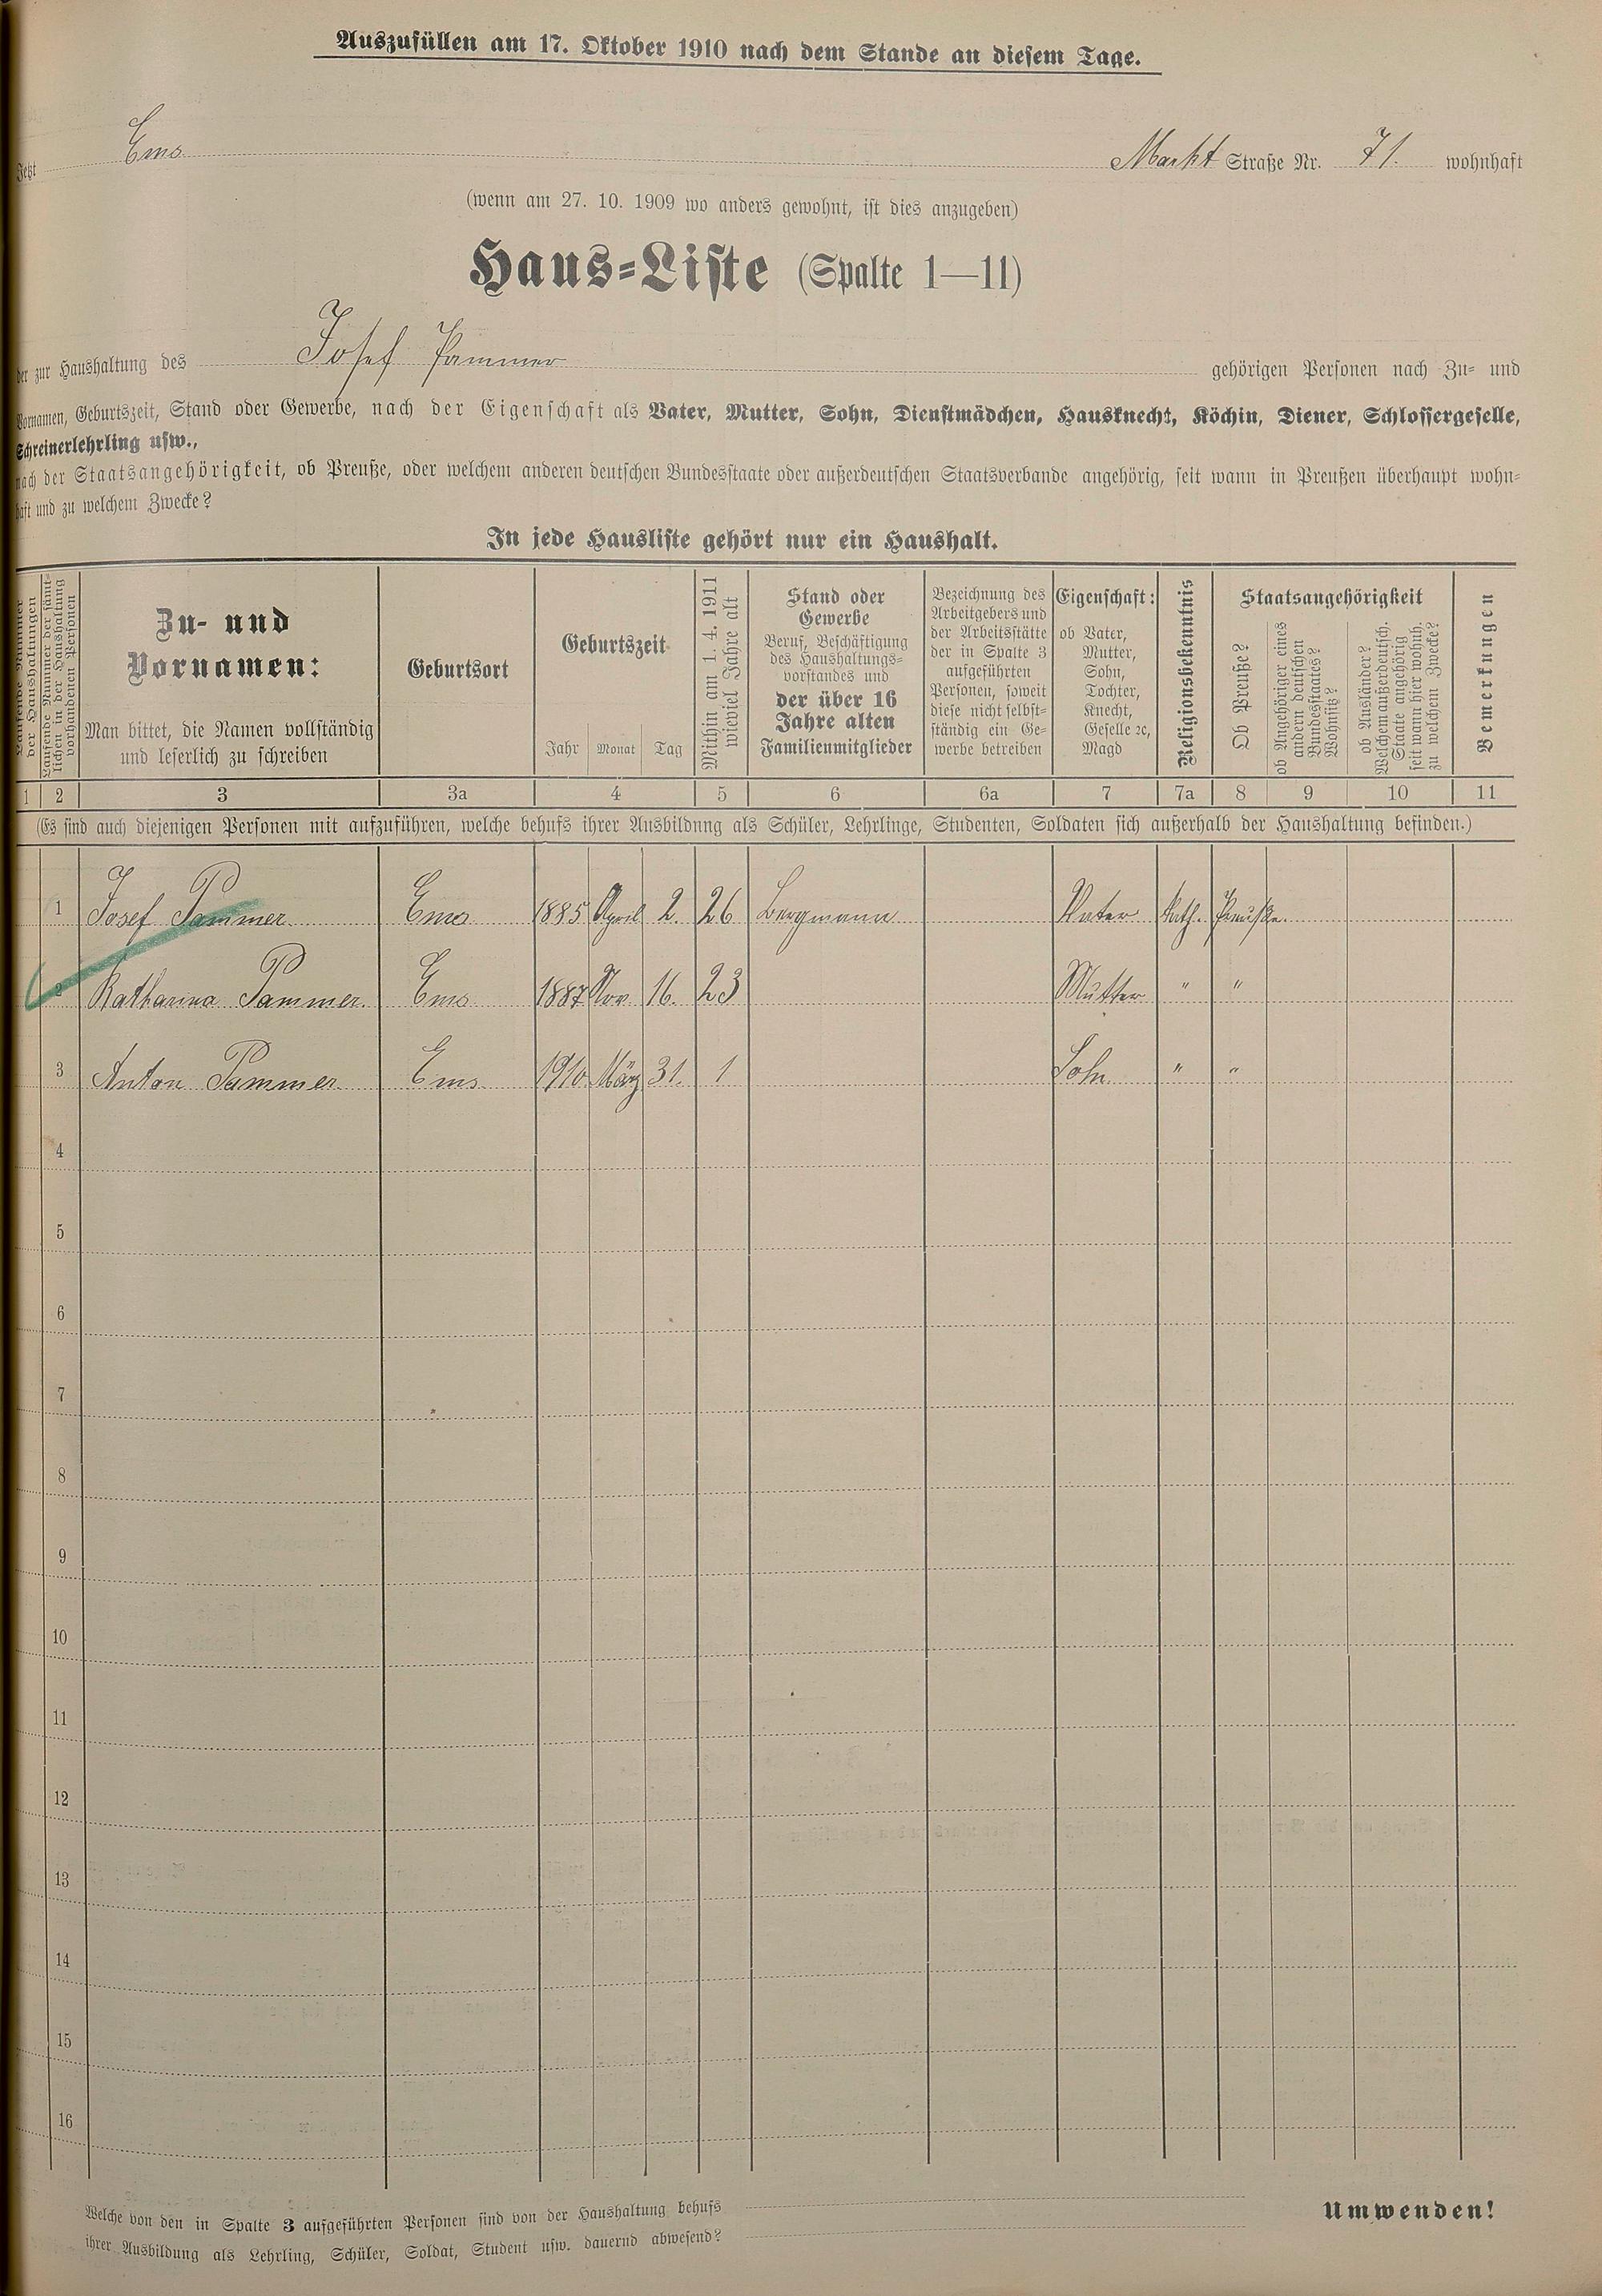 Auszufüllen am 17. Oktober 1910 nach dem Stande an diesem Tage.
Jetzt Ems Markt Straße Nr. 71. wohnhaft
(wenn am 27. 10. 1909 wo anders gewohnt, ist dies anzugeben)
Haus-Liste (Spalte 1—11)
der zur Haushaltung des Josef Pammer gehörigen Personen nach Zu- und
Vornamen, Geburtszeit, Stand oder Gewerbe, nach der Eigenschaft als Vater, Mutter, Sohn, Dienstmädchen, Hausknecht, Köchin, Diener, Schlossergeselle,
Schreinerlehrling usw.,
nach der Staatsangehörigkeit, ob Preuße, oder welchem anderen deutschen Bundesstaate oder außerdeutschen Staatsverbande angehörig, seit wann in Preußen überhaupt wohn-
haft und zu welchem Zwecke?
In jede Hausliste gehört nur ein Haushalt.
Laufende Nummer
der Haushaltungen
Laufende Nummer der sämt-
lichen in der Haushaltung
vorhandenen Personen
Zu- und
Vornamen:
Man bittet, die Namen vollständig
und leserlich zu schreiben
Geburtsort
Geburtszeit
Jahr Monat Tag
Mithin am 1. 4. 1911
wieviel Jahre alt
Stand oder
Gewerbe
Beruf, Beschäftigung
des Haushaltungs-
vorstandes und
der über 16
Jahre alten
Familienmitglieder
Bezeichnung des
Arbeitgebers und
der Arbeitsstätte
der in Spalte 3
aufgeführten
Personen, soweit
diese nicht selbst-
ständig ein Ge-
werbe betreiben
Eigenschaft:
ob Vater,
Mutter,
Sohn,
Tochter,
Knecht,
Geselle ꝛc,
Magd
Religionsbekenntnis
Staatsangehörigkeit
Ob Preuße?
ob Angehöriger eines
andern deutschen
Bundesstaates?
Wohnsitz?
ob Ausländer?
Welchem außerdeutsch.
Staate angehörig
seit wann hier wohnh.
zu welchem Zwecke?
Bemerkungen
1 2 3 3a 4 5 6 6a 7 7a 8 9 10 11
(Es sind auch diejenigen Personen mit aufzuführen, welche behufs ihrer Ausbildung als Schüler, Lehrlinge, Studenten, Soldaten sich außerhalb der Haushaltung befinden.)
1 Josef Pammer. Ems 1885 April 2. 26 Bergmann Vater Kath. Preuße.
2 Katharina Pammer. Ems 1887 Nov. 16. 23 Mutter " "
3 Anton Pammer Ems. 1910 März 31. 1 Sohn " "
4
5
6
7
8
9
10
11
12
13
14
15
16
Welche von den in Spalte 3 aufgeführten Personen sind von der Haushaltung behufs
ihrer Ausbildung als Lehrling, Schüler, Soldat, Student usw. dauernd abwesend?
Umwenden!